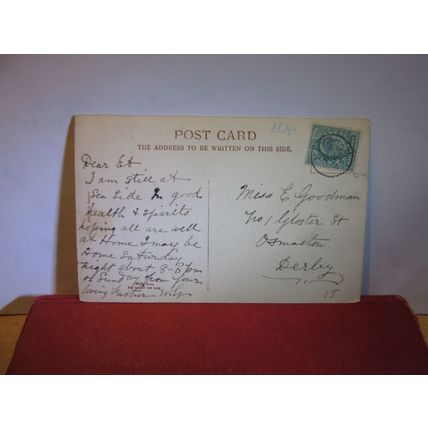 20p
POST CARD
THE ADDRESS TO BE WRITTEN ON THIS SIDE.
Dear Et
I am still at
Sea Side In good
health & spirits
hoping all are well
at Home I may be
Home Saturday
night about 8-0 pm
or Sunday from Your
loving Father
Miss E Goodman
Gloster St
Osmaston
Derby
15